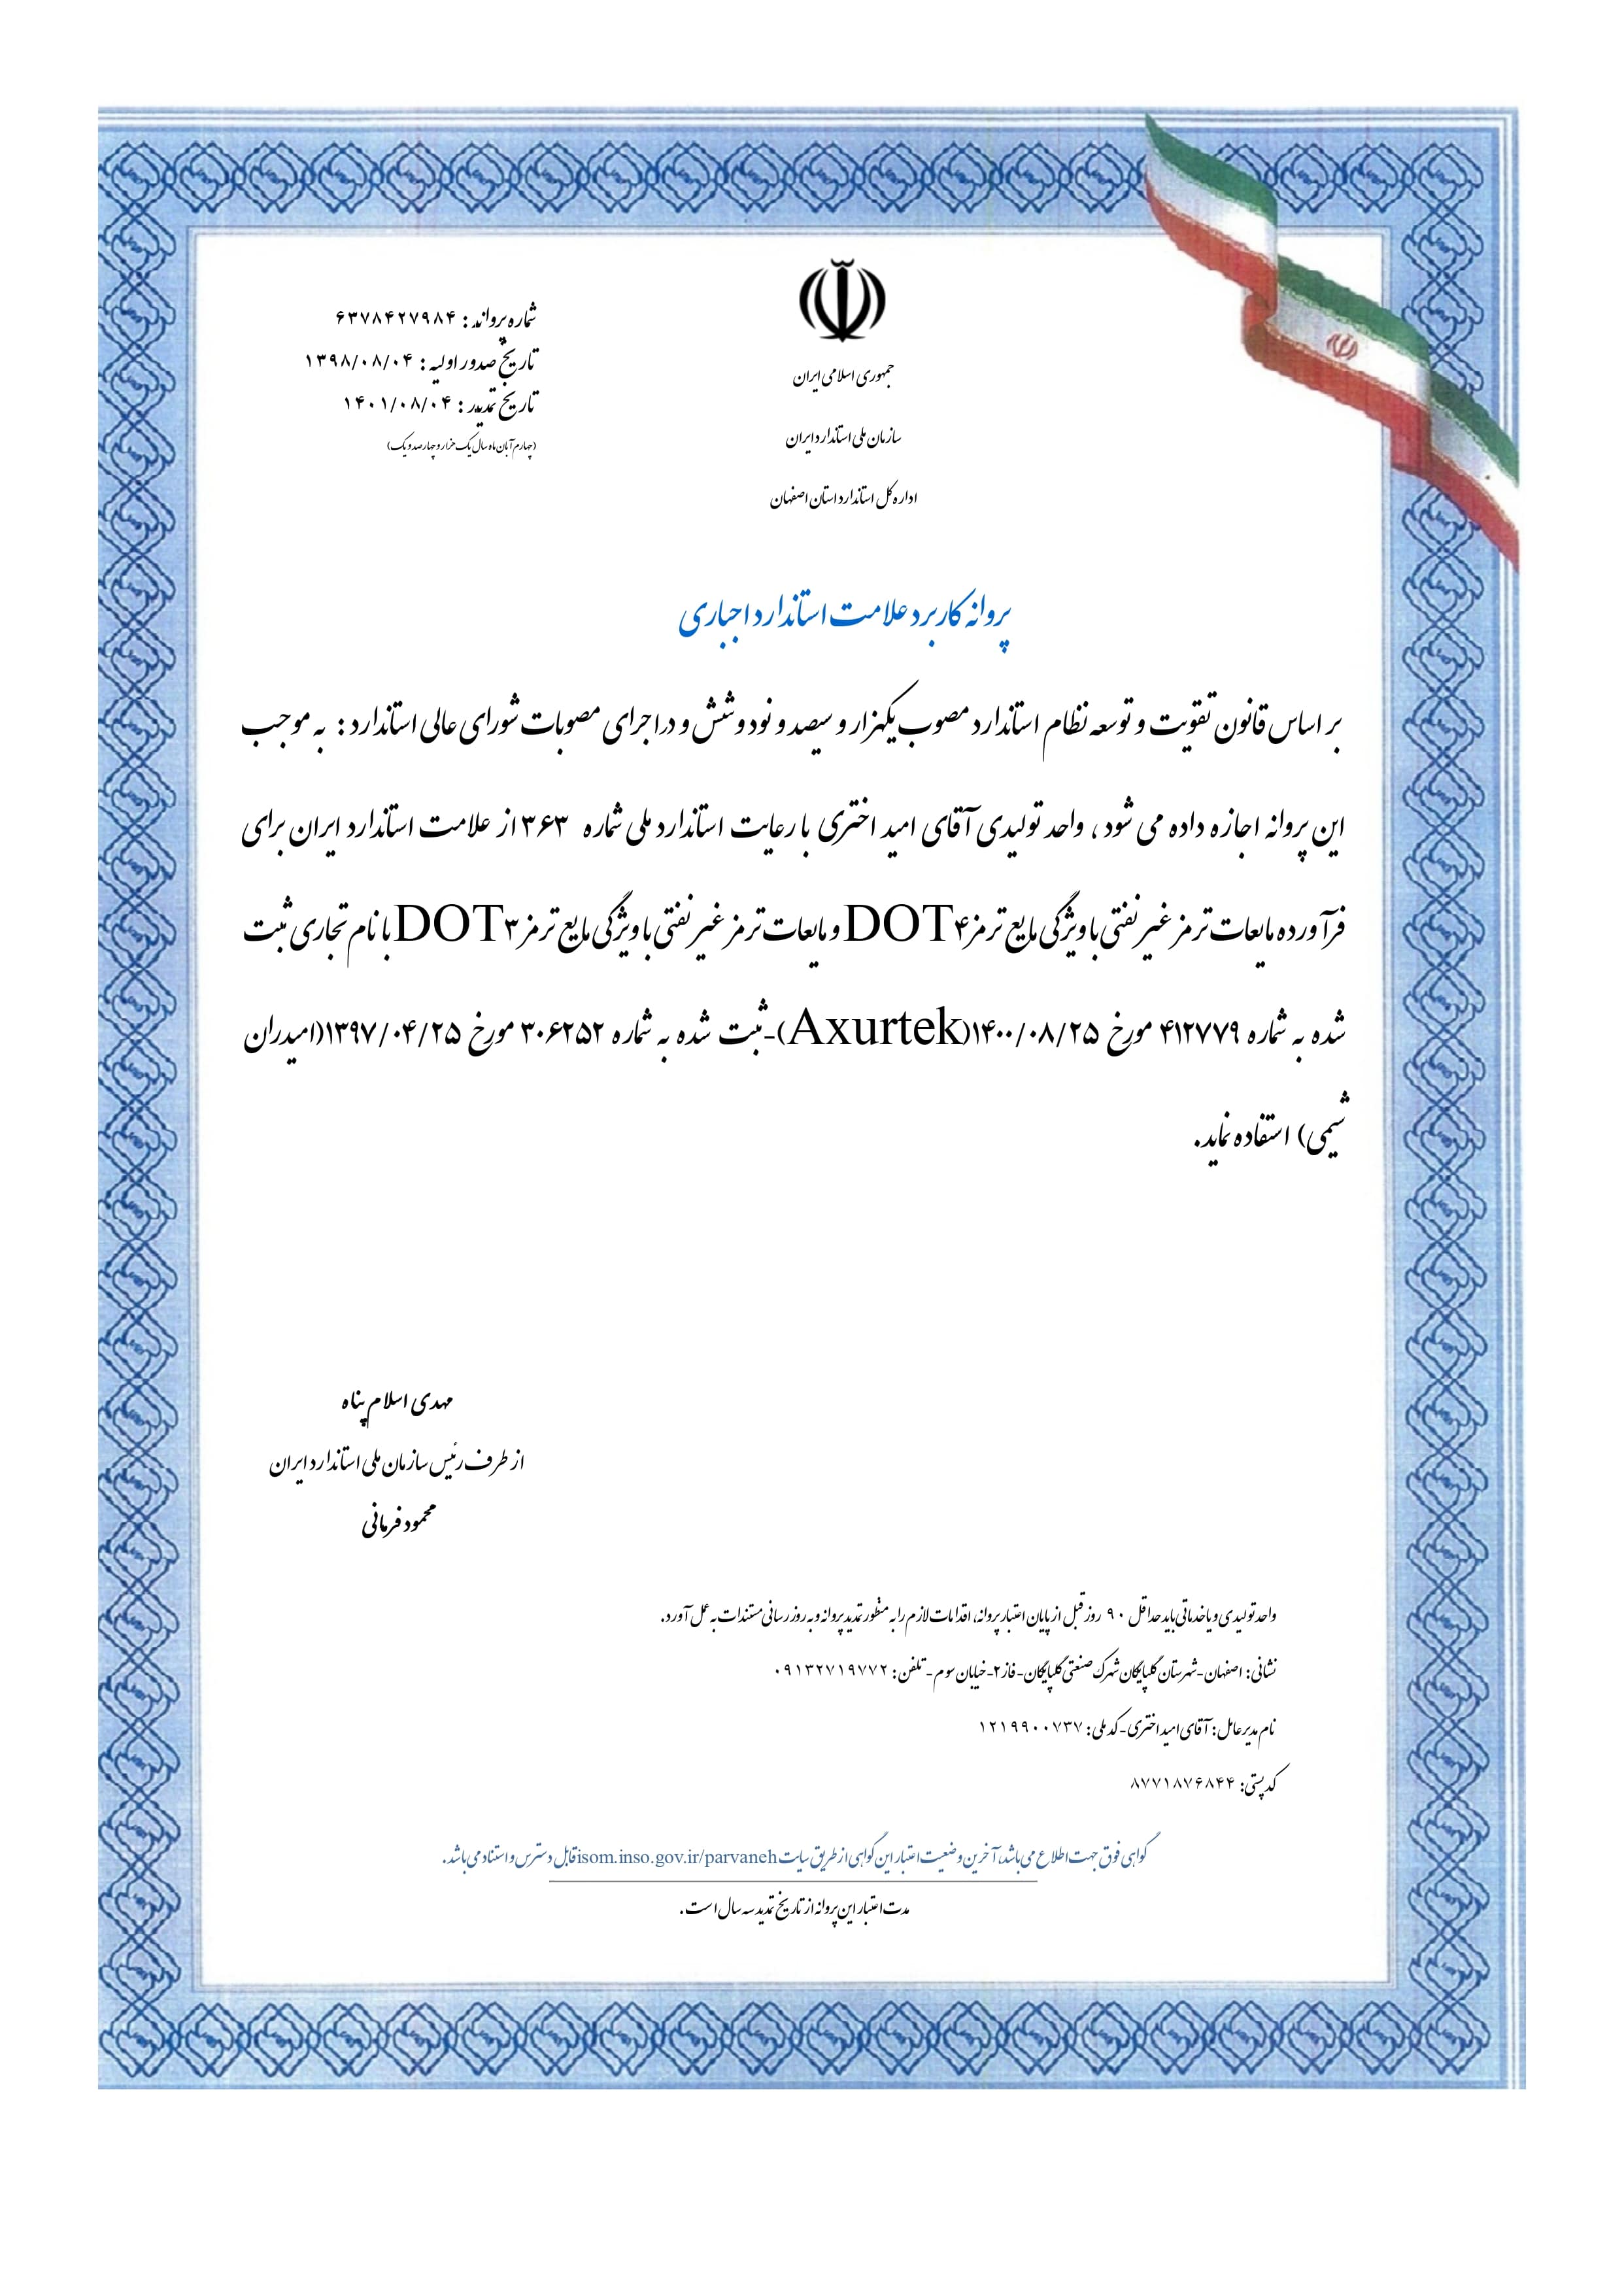 جمهوری اسلامی ایران
سازمان ملی استاندارد ایران
اداره کل استاندارد استان اصفهان
شماره پروانه : ۶۳۷۸۴۲۷۹۸۴
تاریخ صدور اولیه : ۱۳۹۸/۰۸/۰۴
تاریخ تمدید : ۱۴۰۱/۰۸/۰۴
(چهارم آبان ماه سال یک هزار و چهارصد و یک)
پروانه کاربرد علامت استاندارد اجباری
بر اساس قانون تقویت و توسعه نظام استاندارد مصوب یکهزار و سیصد و نود و شش و در اجرای مصوبات شورای عالی استاندارد : به موجب
این پروانه اجازه داده می شود ، واحد تولیدی آقای امید اختری با رعایت استاندارد ملی شماره ۳۶۳ از علامت استاندارد ایران برای
فرآورده مایعات ترمز غیر نفتی با ویژگی مایع ترمز DOT۴ و مایعات ترمز غیر نفتی با ویژگی مایع ترمز DOT۳ با نام تجاری ثبت
شده به شماره ۴۱۲۷۷۹ مورخ ۱۴۰۰/۰۸/۲۵(Axurtek)-ثبت شده به شماره ۳۰۶۲۵۲ مورخ ۱۳۹۷/۰۴/۲۵(امیدران
شیمی) استفاده نماید.
مهدی اسلام پناه
از طرف رئیس سازمان ملی استاندارد ایران
محمود فرمانی
واحد تولیدی و یا خدماتی باید حداقل ۹۰ روز قبل از پایان اعتبار پروانه، اقدامات لازم را به منظور تمدید پروانه و به روز رسانی مستندات به عمل آورد.
نشانی: اصفهان-شهرستان گلپایگان شهرک صنعتی گلپایگان-فاز۲-خیابان سوم - تلفن: ۰۹۱۳۲۷۱۹۷۷۲
نام مدیرعامل: آقای امید اختری-کد ملی: ۱۲۱۹۹۰۰۷۳۷
کد پستی: ۸۷۷۱۸۷۶۸۴۴
گواهی فوق جهت اطلاع می باشد، آخرین وضعیت اعتبار این گواهی از طریق سایت isom.inso.gov.ir/parvaneh قابل دسترس و استناد می باشد.
مدت اعتبار این پروانه از تاریخ تمدید سه سال است.